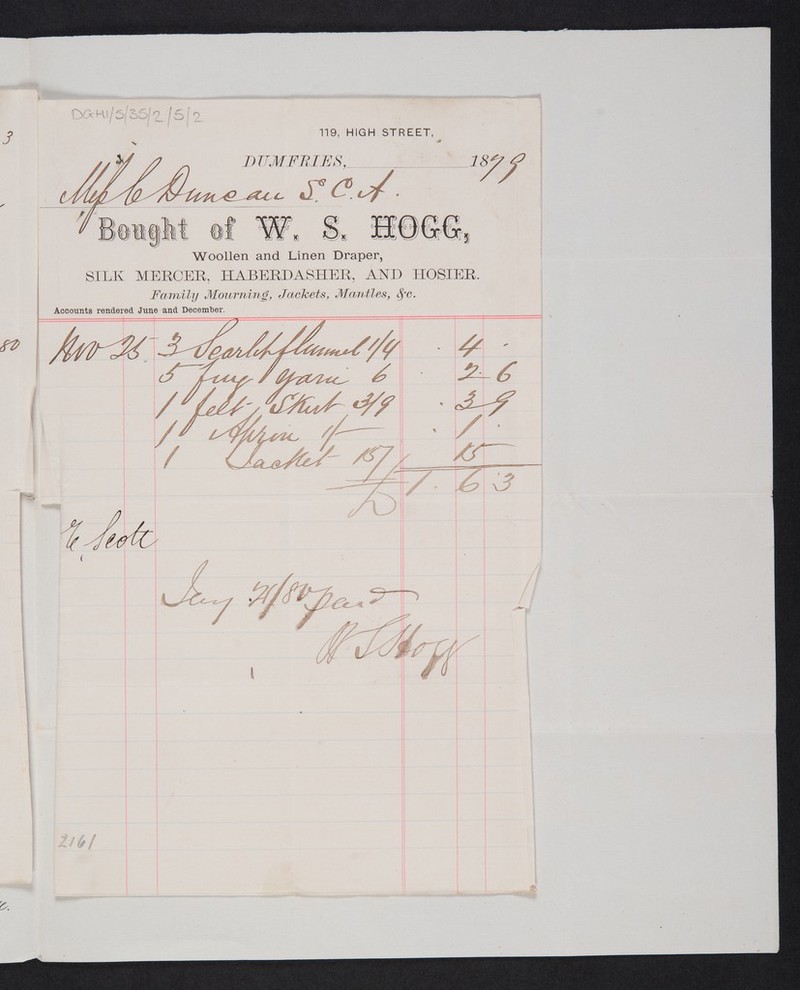 DGH1/5/35/2/5/2
3
119, HIGH STREET,
DUMFRIES, 1879
Miss C Duncan S. C. A.
Bought of W. S. HOGG,
Woollen and Linen Draper,
SILK MERCER, HABERDASHER, AND HOSIER.
Family Mourning, Jackets, Mantles, &c.
Accounts rendered June and December.
80
Nov 25 3 Scarlet flannel 1/4 4 -
5 yarn 6 2 6
1 felt Skirt 3/9 3 9
1 Apron 1/- 1 -
1 Jacket 15/ 15
£ 1 6 3
E. Scott
Jany 21/80 paid
W S Hogg
2161